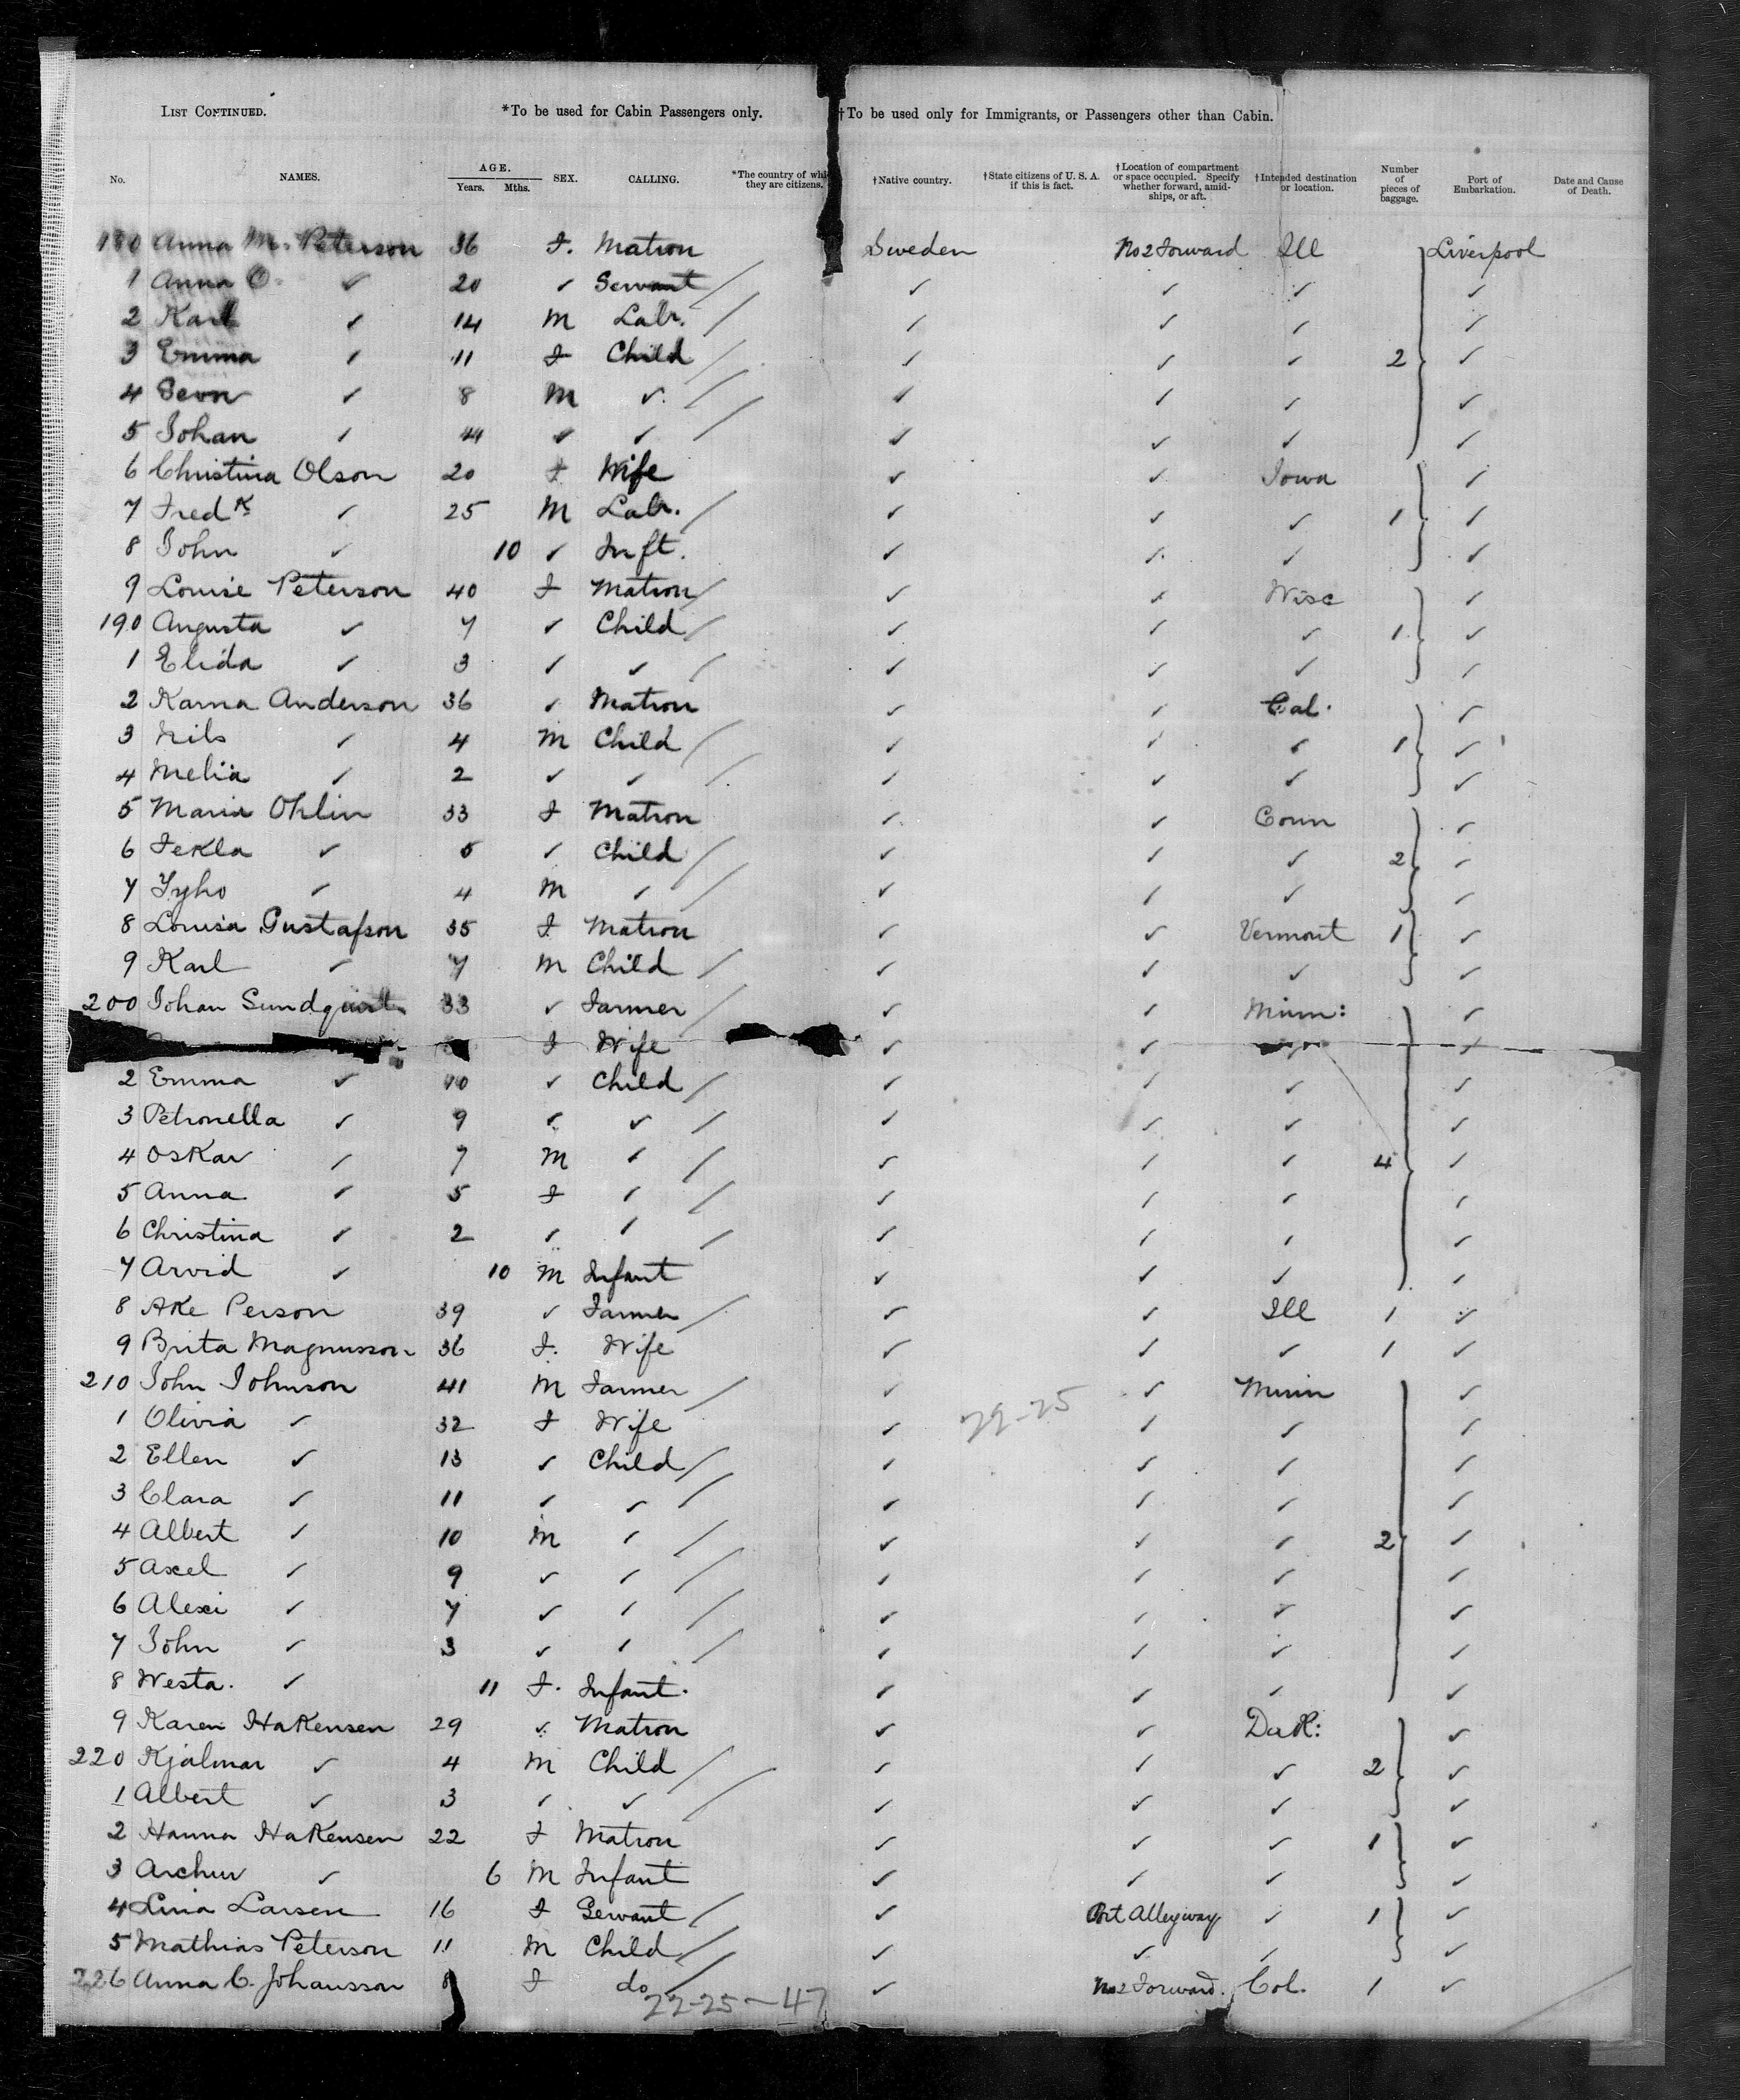 List Continued. *To be used for Cabin Passengers only. †To be used only for Immigrants, or Passengers other than Cabin.
No. NAMES. AGE. Years. Mths. SEX. CALLING. *The country of whi they are citizens. †Native country. †State citizens of U. S. A. if this is fact. †Location of compartment or space occupied. Specify whether forward, amidships, or aft. †Intended destination or location. Number of pieces of baggage. Port of Embarkation. Date and Cause of Death.
180 Anna M. Peterson 36 F. Matron Sweden No 2 Forward Ill Liverpool
1 Anna O. ✓ 20 ✓ Servant / ✓ ✓ ✓ ✓
2 Karl ✓ 14 M Labr. / ✓ ✓ ✓ ✓
3 Emma ✓ 11 F Child / ✓ ✓ ✓ 2 ✓
4 Sevn ✓ 8 M ✓ / ✓ ✓ ✓ ✓
5 Johan ✓ 4 ✓ ✓ / ✓ ✓ ✓ ✓
6 Christina Olson 20 F Wife ✓ ✓ Iowa ✓
7 Fredk ✓ 25 M Labr. / ✓ ✓ ✓ 1 ✓
8 John ✓ 10 ✓ Inft. ✓ ✓ ✓ ✓
9 Louise Peterson 40 F Matron / ✓ ✓ Wisc ✓
190 Augusta ✓ 7 ✓ Child / ✓ ✓ ✓ 1 ✓
1 Elida ✓ 3 ✓ ✓ / ✓ ✓ ✓ ✓
2 Karna Anderson 36 ✓ Matron ✓ ✓ Cal. ✓
3 Nils ✓ 4 M Child / ✓ ✓ ✓ 1 ✓
4 Melia ✓ 2 ✓ ✓ / ✓ ✓ ✓ ✓
5 Maria Ohlin 33 F Matron ✓ ✓ Conn ✓
6 Tekla ✓ 5 ✓ Child / ✓ ✓ ✓ 2 ✓
7 Tyho ✓ 4 M ✓ / ✓ ✓ ✓ ✓
8 Louisa Gustafson 35 F Matron ✓ ✓ Vermont 1 ✓
9 Karl ✓ 7 M Child / ✓ ✓ ✓ ✓
200 Johan Sundquist 33 ✓ Farmer / ✓ ✓ Minn: ✓
F Wife ✓ ✓ ✓ ✓
2 Emma ✓ 10 ✓ Child / ✓ ✓ ✓ ✓
3 Petronella ✓ 9 ✓ ✓ / ✓ ✓ ✓ ✓
4 Oskar ✓ 7 M ✓ / ✓ ✓ ✓ 4 ✓
5 Anna ✓ 5 F ✓ / ✓ ✓ ✓ ✓
6 Christina ✓ 2 ✓ ✓ / ✓ ✓ ✓ ✓
7 Arvid ✓ 10 M Infant ✓ ✓ ✓ ✓
8 Ake Person 39 ✓ Farmer / ✓ ✓ Ill 1 ✓
9 Brita Magnusson 36 F. Wife ✓ ✓ ✓ 1 ✓
210 John Johnson 41 M Farmer / ✓ ✓ Minn ✓
1 Olivia ✓ 32 F Wife ✓ 29-25 ✓ ✓ ✓
2 Ellen ✓ 13 ✓ Child / ✓ ✓ ✓ ✓
3 Clara ✓ 11 ✓ ✓ / ✓ ✓ ✓ ✓
4 Albert ✓ 10 M ✓ / ✓ ✓ ✓ 2 ✓
5 Axel ✓ 9 ✓ ✓ / ✓ ✓ ✓ ✓
6 Alexi ✓ 7 ✓ ✓ / ✓ ✓ ✓ ✓
7 John ✓ 3 ✓ ✓ / ✓ ✓ ✓ ✓
8 Westa. ✓ 11 F. Infant. ✓ ✓ ✓ ✓
9 Karen Hakensen 29 ✓ Matron ✓ ✓ Dak: ✓
220 Kjalmar ✓ 4 M Child / ✓ ✓ ✓ 2 ✓
1 Albert ✓ 3 ✓ ✓ / ✓ ✓ ✓ ✓
2 Hanna Hakensen 22 F Matron ✓ ✓ ✓ 1 ✓
3 Archur ✓ 6 M Infant ✓ ✓ ✓ ✓
4 Lina Larsen 16 F Servant / ✓ Port Alleyway ✓ 1 ✓
5 Mathias Peterson 11 M Child / ✓ ✓ ✓ ✓
226 Anna C. Johansson F do / ✓ No 2 Forward. Col. 1 ✓
22-25-47